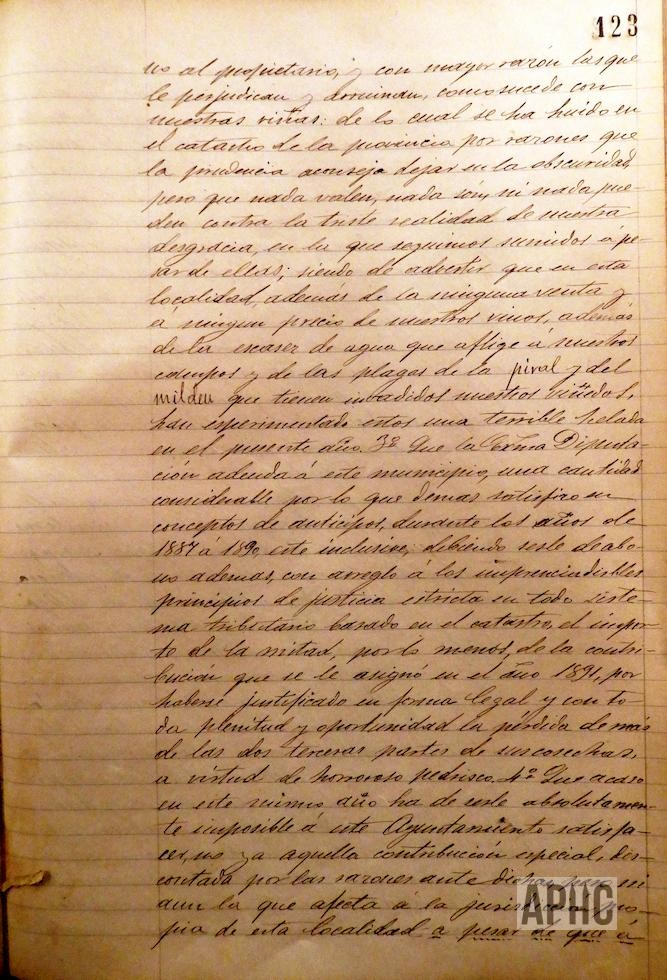 123
no al propietario, y con mayor razón las que
le perjudican y arruinan, como sucede con
nuestras viñas: de lo cual se ha huido en
el catastro de la provincia por razones que
la prudencia aconseja dejar en la obscuridad,
pero que nada valen, nada són, ni nada pue-
den contra la triste realidad de nuestra
desgracia, en la que seguimos sumidos á pe-
sar de ellas; siendo de advertir que en esta
localidad, además de la ninguna venta y
á ningun precio de nuestros vinos, además
de la escasez de agua que aflige á nuestros
campos y de las plagas de la piral y del
mildeu que tienen invadidos nuestros viñedos,
han experimentado estos una terrible helada
en el presente año. 3º Que la Exma Diputa-
ción adeuda á este municipio, una cantidad
considerable por lo que demas satisfizo en
conceptos de anticipos, durante los años de
1887 á 1890, este inclusive; debiendo serle de abo-
no ademas, con arreglo á los imprencindibles
principios de justicia estricta en todo siste-
ma tributario basado en el catastro, el impor-
te de la mitad, por lo menos, de la contri-
bución que se le asignó en el año 1891, por
haberse justificado en forma legal y con to-
da plenitud y oportunidad la pérdida de más
de las dos terceras partes de sus cosechas,
a virtud de horroroso pedrisco. 4º Que acaso
en este mismo año ha de serle absolutamen-
te imposible á este Ayuntamiento satisfa-
cer, no ya aquella contribución especial, des-
contada por las razones ante dichas, ni
aun la que afecta á la jurisdicción pro-
pia de esta localidad a pesar de que á
APHC